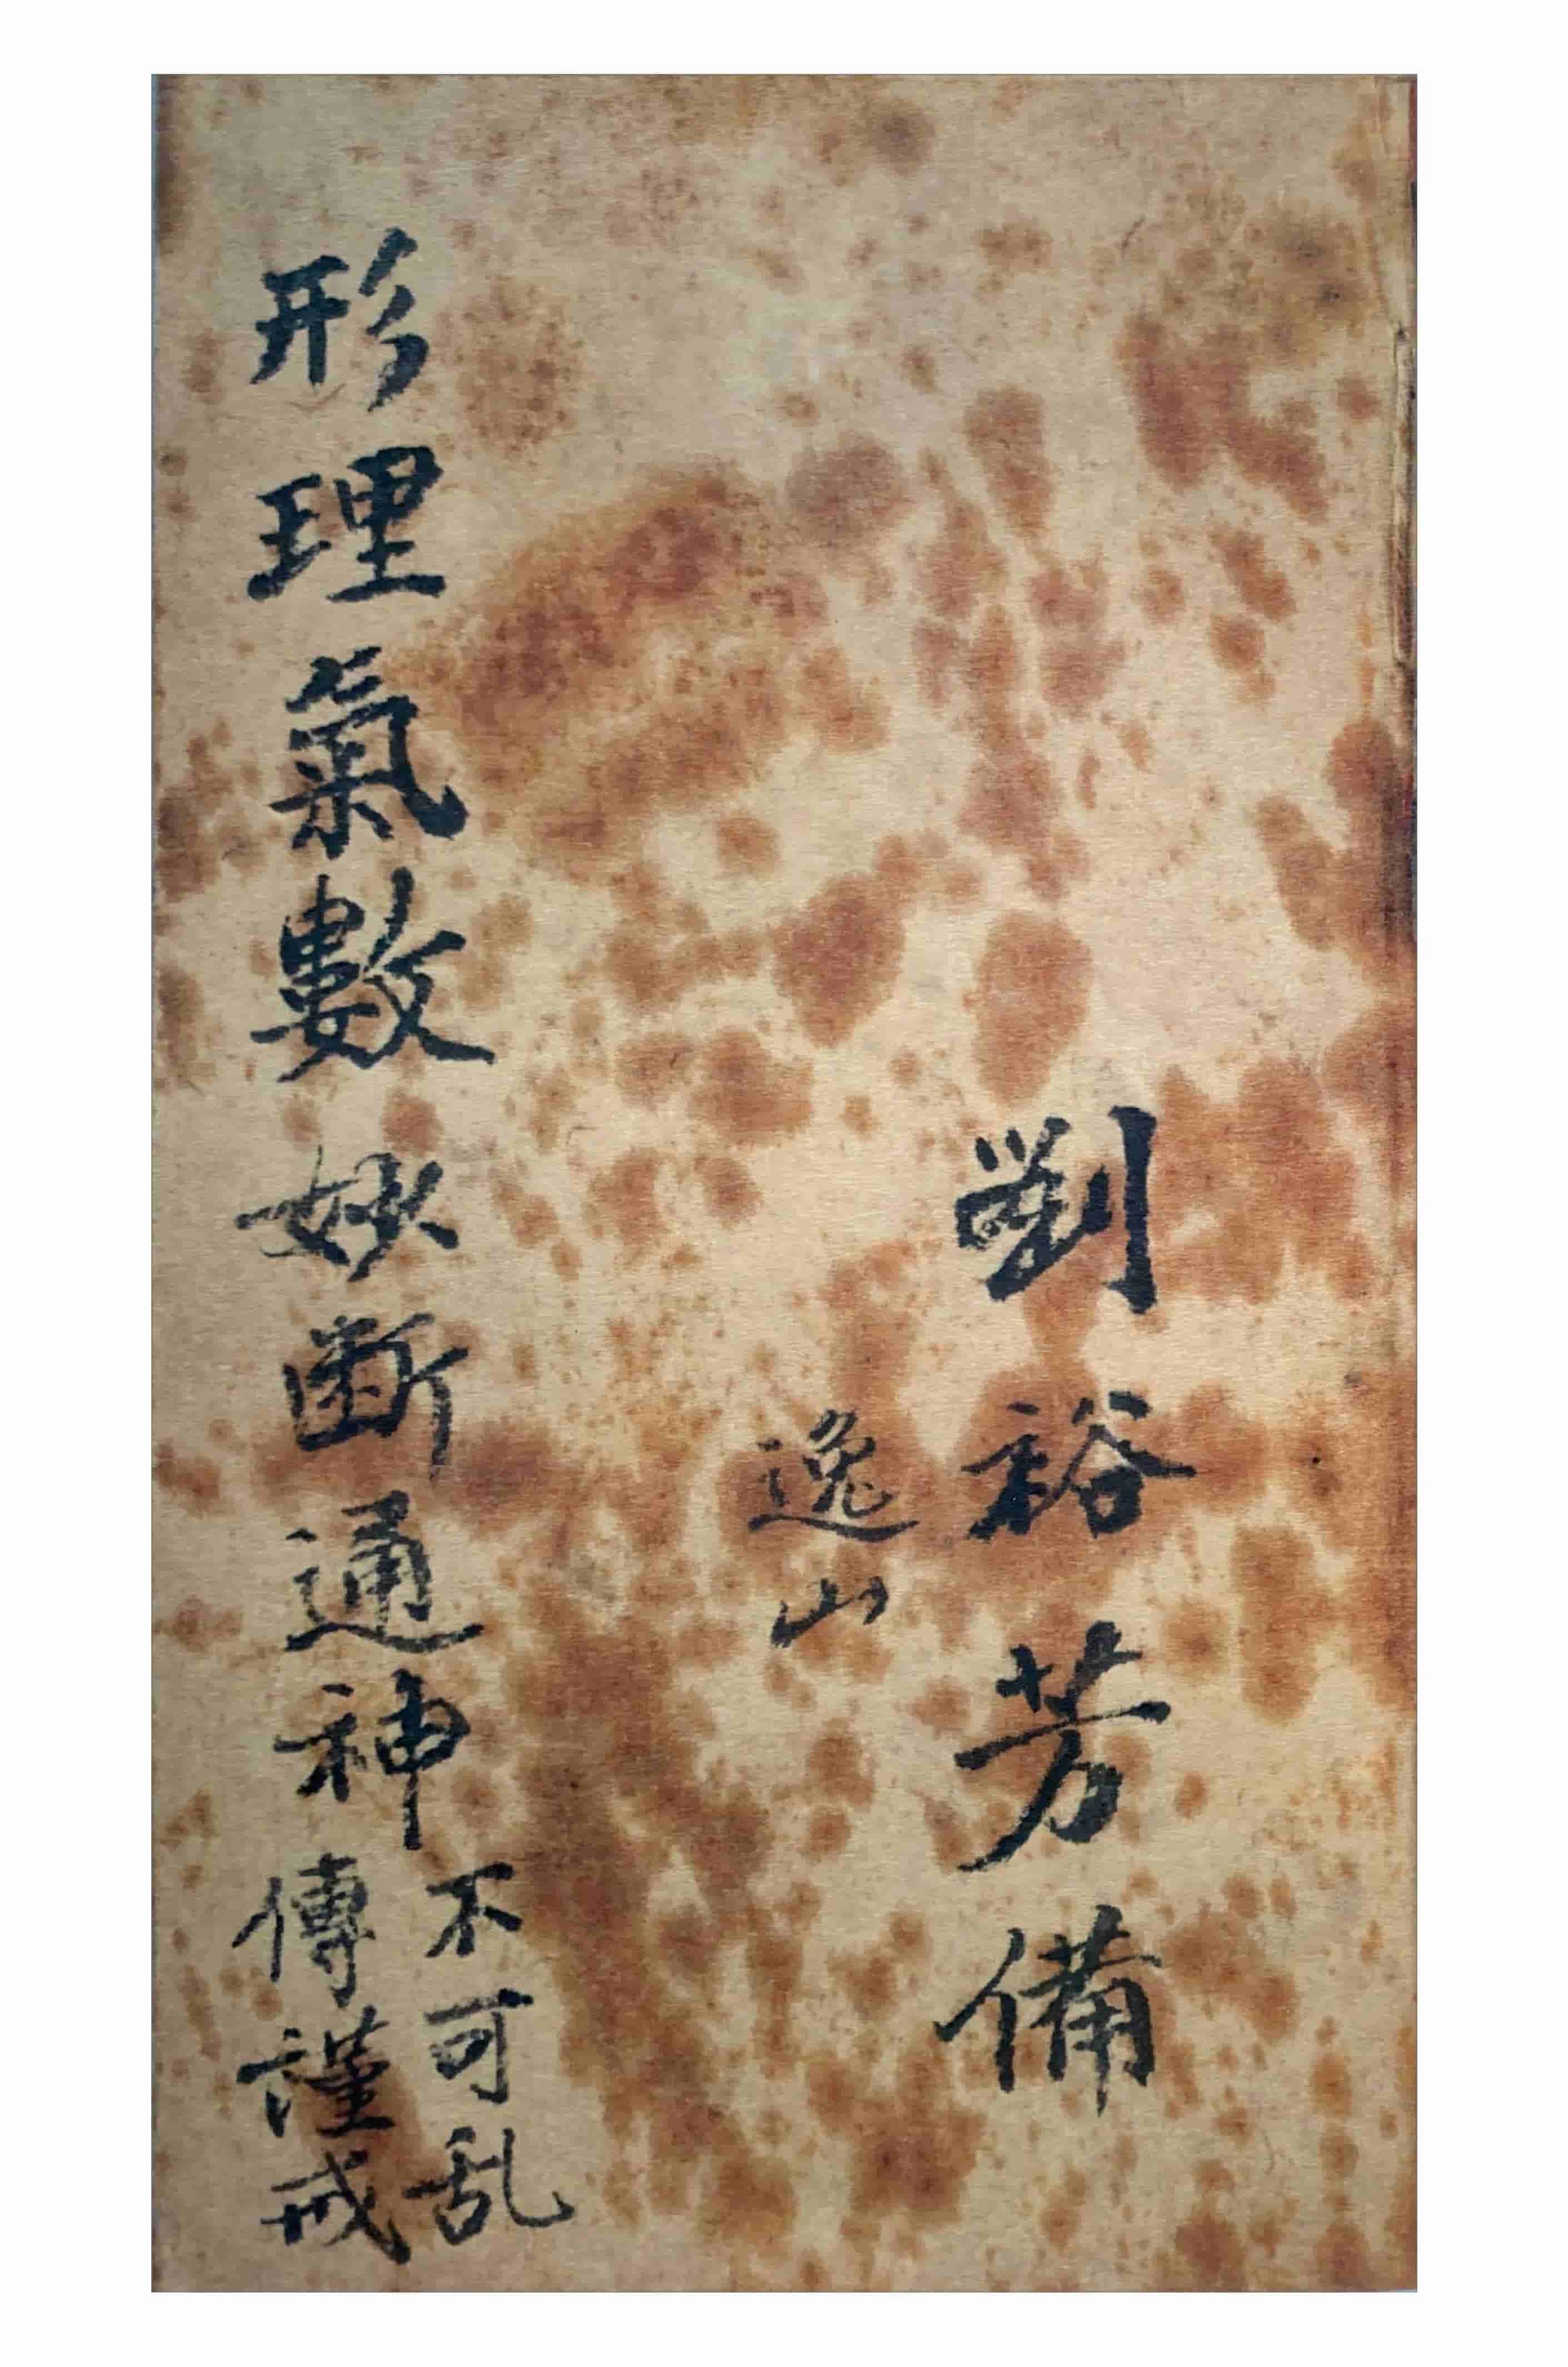 劉裕芳備
逸山
形理氣數妙斷通神
不可乱
傳謹戒